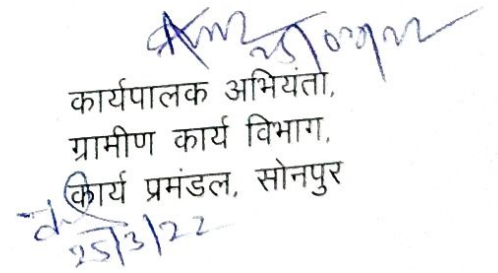 25/03/22
कार्यपालक अभियंता,
ग्रामीण कार्य विभाग,
कार्य प्रमंडल, सोनपुर
25/3/22